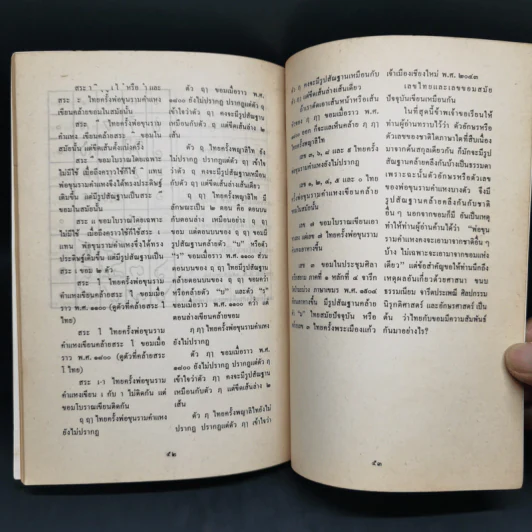 สระ ะ ไทยครั้งพ่อขุนรามคำแหง
เขียนคล้ายขอมในสมัยนั้น
สระ ๊ ไทยครั้งพ่อขุนราม
คำแหง เขียนสระ ๊ ขอมใน
สมัยนั้น แต่ขีดตั้งแบ่งครึ่ง
ขอมโบราณโดยเฉพาะ
ไม่มีใช้ เมื่อถึงคราวใช้ก็ใช้ แทน
พ่อขุนรามคำแหงซึ่งได้ทรงประดิษฐ์
เดิมขึ้น แต่มีรูปสัณฐานเป็นสระ
ขอมในสมัยนั้น
ขอมโบราณโดยเฉพาะ
ไม่มีใช้ เมื่อถึงคราวใช้ก็ใช้สระ เ
แทน พ่อขุนรามคำแหงซึ่งได้ทรง
ประดิษฐ์เดิมขึ้น แต่มีรูปสัณฐานเป็น
สระ เ ขอม ๒ ตัว
สระ ไ ไทยครั้งพ่อขุนราม
คำแหงเขียนคล้ายสระ ไ ขอมเมื่อ
ราว พ.ศ. ๑๑๐๐ (ดูตัวที่คล้ายสระ ไ
ไทย)
สระ โ ไทยครั้งพ่อขุนราม
คำแหงเขียนคล้ายสระ โ ขอมเมื่อ
ราว พ.ศ. ๑๘๐๐ (ดูตัวที่คล้ายสระ
โ ไทย)
สระ เ-า ไทยครั้งพ่อขุนรามคำ
แหงเขียน เ กับ า ไม่ติดกัน แต่
ขอมโบราณเขียนติดกัน
ฤ ฤๅ ไทยครั้งพ่อขุนรามคำแหง
ยังไม่ปรากฏ
ตัว ฤๅ ขอมเมื่อราว พ.ศ.
๑๘๐๐ ยังไม่ปรากฏ ปรากฏแต่ตัว ฤ
เข้าใจว่าตัว ฤๅ คงจะมีรูปสัณฐาน
เหมือนกับตัว ฤ แต่ขีดเส้นล่าง ๒
เส้น
ตัว ฤ ไทยครั้งพญาลิไท
ยังไม่ปรากฏ ปรากฏแต่ตัว ฤๅ เข้าใจ
ว่าตัว ฤ คงจะมีรูปสัณฐานเหมือนกับ
ตัว ฤๅ แต่ขีดเส้นล่างเส้นเดียว
ฤ ฤๅ ไทยครั้งพญาลิไท มี
ลักษณะเป็น ๒ ตอน คือ ตอนบน
กับตอนล่าง เหมือนอย่าง ฤ ฤๅ
ขอม แต่ตอนบนของ ฤ ฤๅ ขอมมี
รูปสัณฐานคล้ายตัว “บ” หรือตัว
ขอมเมื่อราว พ.ศ. ๑๑๐๐ ส่วน
ตอนบนของ ฤ ฤๅ ไทยมีรูปสัณฐาน
คล้ายตอนบนของ ฤ ฤๅ ขอมคว่ำ
หรือคล้ายตัว “บ” และตัว
ขอมเมื่อราว พ.ศ. ๑๑๐๐ คว่ำ แต่
ตอนล่างเขียนคล้ายขอม
ฦ ฦๅ ไทยครั้งพ่อขุนรามคำแหง
ยังไม่ปรากฏ
ตัว ฦ ฦๅ ขอมเมื่อราว พ.ศ.
๑๘๐๐ ยังไม่ปรากฏ ปรากฏแต่ตัว ฦ
เข้าใจว่าตัว ฦๅ คงจะมีรูปสัณฐาน
เหมือนกับตัว ฦ แต่ขีดเส้นล่าง ๒
เส้น
ตัว ฦ ไทยครั้งพญาลิไทยังไม่
ปรากฏ ปรากฏแต่ตัว ฦๅ เข้าใจว่า
๕๒
คงจะมีรูปสัณฐานเหมือนกับ
แต่ขีดเส้นล่างเส้นเดียว
ถ้าเราตัดเอาเส้นหน้าหรือเส้น
ของ ฦ ฦๅ ขอมเมื่อราว พ.ศ.
ออก ก็จะแลเห็นคล้าย ฦ
ครั้งพญาลิไท
เลข ๓, ๖, ๘ และ ๙ ไทยครั้ง
ขุนรามคำแหงยังไม่ปรากฏ
เลข ๑, ๒, ๔, ๕ และ ๐ ไทย
พ่อขุนรามคำแหงเขียนคล้าย
ในสมัยนั้น
เลข ๗ ขอมโบราณเขียนเอา
แต่เลข ๗ ไทยครั้งพ่อขุนราม
เอาหางขึ้น
เลข ๓ ขอมในประชุมศิลา
ภาคที่ ๑ หลักที่ ๔ จารึก
ป่ามะม่วง ภาษาเขมร พ.ศ. ๑๙๐๔
หางขึ้น มีรูปสัณฐานคล้าย
ไทยสมัยปัจจุบัน หรือ
เลข ๓ ไทยครั้งพระเมืองแก้ว
เจ้าเมืองเชียงใหม่ พ.ศ. ๒๐๔๓
เลขไทยและเลขขอมสมัย
ปัจจุบันเขียนเหมือนกัน
ในที่สุดนี้ข้าพเจ้าขอเรียนให้
ท่านผู้อ่านทราบไว้ว่า ตัวอักษรหรือ
ตัวเลขของชาติใดภาษาใดที่สืบเนื่อง
มาจากต้นสกุลเดียวกัน ก็มักจะมีรูป
สัณฐานคล้ายคลึงกันบ้างเป็นธรรมดา
เพราะฉะนั้นตัวอักษรหรือตัวเลข
ของพ่อขุนรามคำแหงบางตัว ซึ่งมี
รูปสัณฐานคล้ายคลึงกันกับชาติ
อื่น ๆ นอกจากขอมก็มี อันเป็นเหตุ
ทำให้ท่านผู้อ่านค้านได้ว่า “พ่อขุน
รามคำแหงคงจะเอามาจากชาติอื่น ๆ
บ้าง ไม่เพราะจะเอามาจากขอมแห่ง
เดียว” แต่ข้อสำคัญขอให้ท่านนึกถึง
เหตุผลอันเกี่ยวด้วยศาสนา ขนบ
ธรรมเนียม จารีตประเพณี ศิลปกรรม
นิรุกติศาสตร์ และอักษรศาสตร์ เป็น
ต้น ว่าไทยกับขอมมีความสัมพันธ์
กันมาอย่างไร?
๕๓